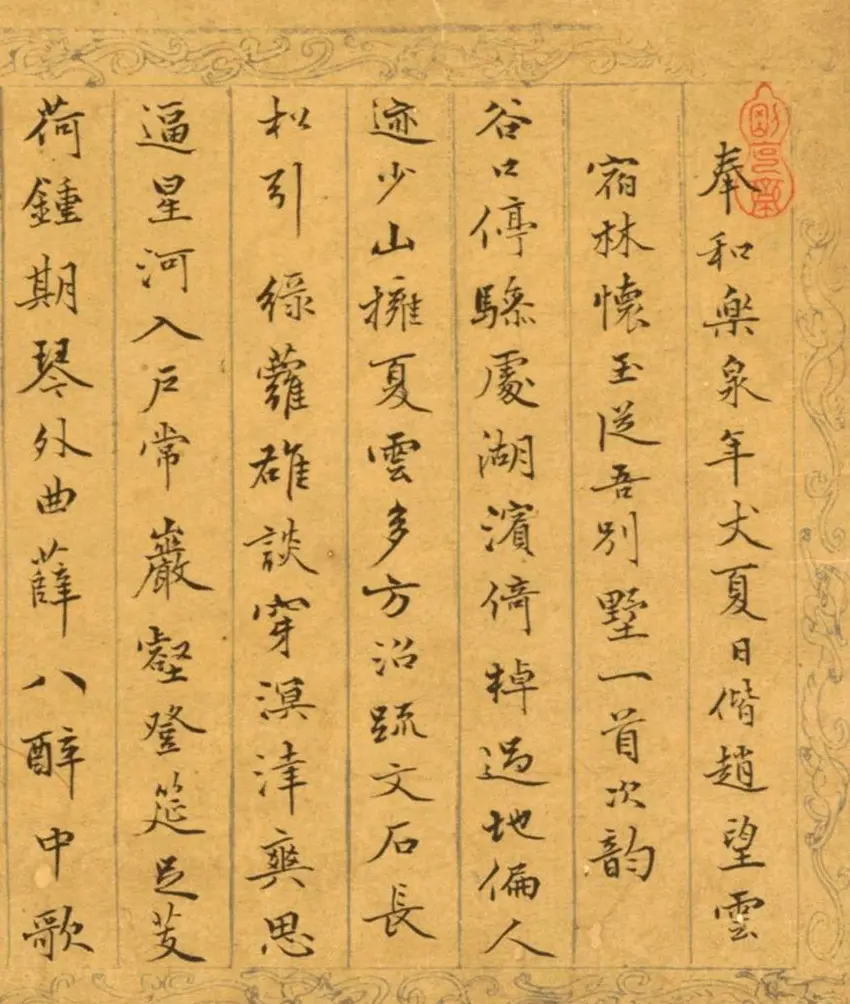 奉和樂泉年丈夏日偕趙望雲
宿林懷玉從吾別墅一首次韵
谷口停驂處湖濱倚棹過地偏人
迹少山擁夏雲多方沼疏文石長
松引綠蘿雄談穿溟涬爽思
逼星河入戶常巖壑登筵足芰
荷鍾期琴外曲薛八醉中歌